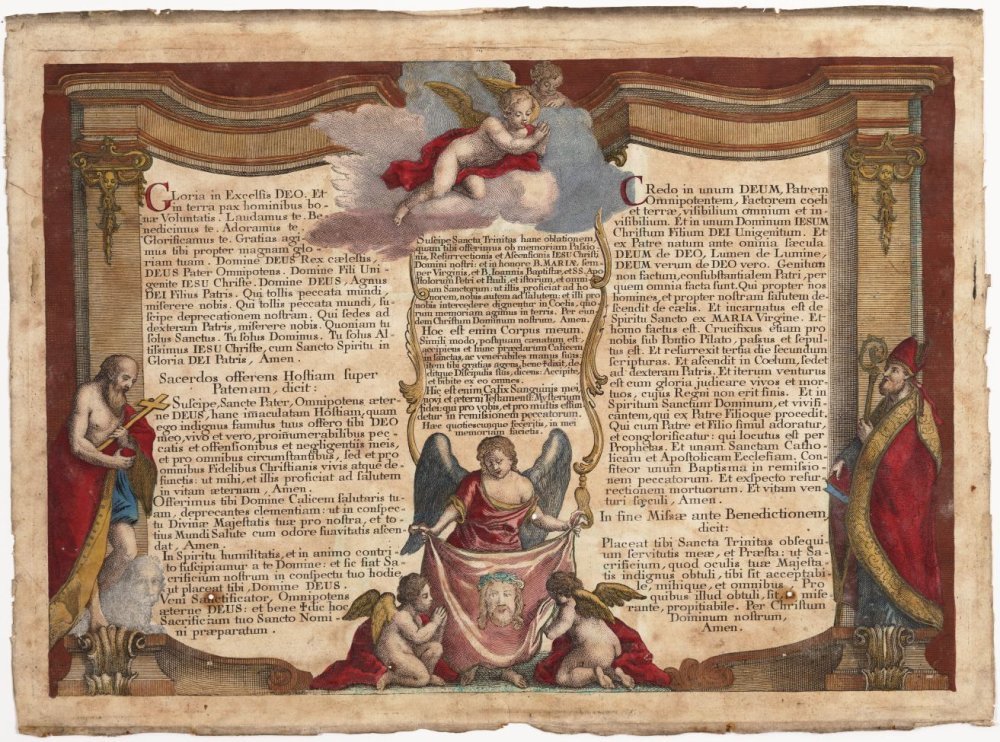 Gloria in Excelſis DEO. Et
in terra pax hominibus bo-
næ Voluntatis. Laudamus te. Be-
nedicimus te. Adoramus te.
Glorificamus te. Gratias agi-
mus tibi propter magnam glo-
riam tuam. Domine DEUS Rex cæleſtis,
DEUS Pater Omnipotens. Domine Fili Uni-
genite IESU Chriſte. Domine DEUS, Agnus
DEI Filius Patris. Qui tollis peccata mundi,
miſerere nobis. Qui tollis peccata mundi, ſu-
ſcipe deprecationem noſtram. Qui ſedes ad
dexteram Patris, miſerere nobis. Quoniam tu
ſolus Sanctus. Tu ſolus Dominus. Tu ſolus Al-
tiſſimus IESU Chriſte, cum Sancto Spiritu in
Gloria DEI Patris, Amen.
Sacerdos offerens Hoſtiam ſuper
Patenam, dicit:
Suſcipe, Sancte Pater, Omnipotens æter-
ne DEUS, hanc imaculatam Hoſtiam, quam
ego indignus famulus tuus offero tibi DEO
meo, vivo et vero, pro innumerabilibus pec-
catis et offenſionibus et negligentiis meis,
et pro omnibus circumſtantibus, ſed et pro
omnibus Fidelibus Chriſtianis vivis atque de-
functis: ut mihi, et illis proficiat ad ſalutem
in vitam æternam, Amen.
Offerimus tibi Domine Calicem ſalutaris tu-
um, deprecantes clementiam: ut in conſpec-
tu Divinæ Majeſtatis tuæ pro noſtra, et to-
tius Mundi Salute cum odore ſuavitatis aſcen-
dat, Amen.
In Spiritu humilitatis, et in animo contri-
to ſuſcipiamur a te Domine: et ſic fiat Sa-
crificium noſtrum in conſpectu tuo hodie
ut placeat tibi, Domine DEUS.
Veni Sanctificator, Omnipotens
æterne DEUS: et bene ✝dic hoc
Sacrificium tuo Sancto Nomi-
ni præparatum.
Suſcipe Sancta Trinitas hanc oblationem,
quam tibi offerimus ob memoriam Paſſio-
nis, Reſurrectionis et Aſcenſionis IESU Chriſti,
Domini noſtri: et in honore B. MARIÆ ſem-
per Virginis, et B. Ioannis Baptiſtæ, et SS. Apo-
ſtolorum Petri et Pauli, et iſtorum, et omni-
um Sanctorum: ut illis proficiat ad ho-
norem, nobis autem ad ſalutem: et illi pro
nobis intercedere dignentur in Cœlis, quo-
rum memoriam agimus in terris. Per eun-
dem Chriſtum Dominum noſtrum, Amen.
Hoc eſt enim Corpus meum.
Simili modo, poſtquam cænatum eſt:
accipiens et hunc præclarum Calicem
in ſanctas, ac venerabiles manus ſuas,
item tibi gratias agens, bene ✝dixit, de-
ditque Diſcipulis ſuis, dicens: Accipite,
et bibite ex eo omnes.
Hic eſt enim Calix Sanguinis mei
novi et æterni Teſtamenti: Myſterium
fidei: qui pro vobis, et pro multis effun-
detur in remiſſionem peccatorum.
Hæc quotieſcunque feceritis, in mei
memoriam facietis.
CRedo in unum DEUM, Patrem
Omnipotentem, Factorem cœli
et terræ, viſibilium omnium et in-
viſibilium. Et in unum Dominum IESUM
Chriſtum Filium DEI Unigenitum. Et
ex Patre natum ante omnia ſæcula.
DEUM de DEO, Lumen de Lumine,
DEUM verum de DEO vero. Genitum
non factum, conſubſtantialem Patri, per
quem omnia facta ſunt. Qui propter nos
homines, et propter noſtram ſalutem de-
ſcendit de cælis. Et incarnatus eſt de
Spiritu Sancto ex MARIA Virgine. Et
homo factus eſt. Crucifixus etiam pro
nobis ſub Pontio Pilato, paſsus et ſepul-
tus eſt. Et reſurrexit tertia die ſecundum
ſcripturas. Et aſcendit in Cœlum, ſedet
ad dexteram Patris. Et iterum venturus
eſt cum gloria judicare vivos et mor-
tuos, cujus Regni non erit finis. Et in
Spiritum Sanctum Dominum, et vivifi-
cantem, qui ex Patre Filioque procedit.
Qui cum Patre et Filio ſimul adoratur,
et conglorificatur: qui locutus eſt per
Prophetas. Et unam Sanctam Catho-
licam et Apoſtolicam Eccleſiam. Con-
fiteor unum Baptisma in remiſsio-
nem peccatorum. Et exſpecto reſur-
rectionem mortuorum. Et vitam ven-
turi ſæculi, Amen.
In fine Miſsæ ante Benedictionem
dicit:
Placeat tibi Sancta Trinitas obſequi-
um ſervitutis meæ, et Præſta: ut Sa-
crificium, quod oculis tuæ Majeſta-
tis indignus obtuli, tibi ſit acceptabi-
le, mihique, et omnibus, Pro
quibus illud obtuli, ſit miſe-
rante, propitiabile. Per Chriſtum
Dominum noſtrum,
Amen.